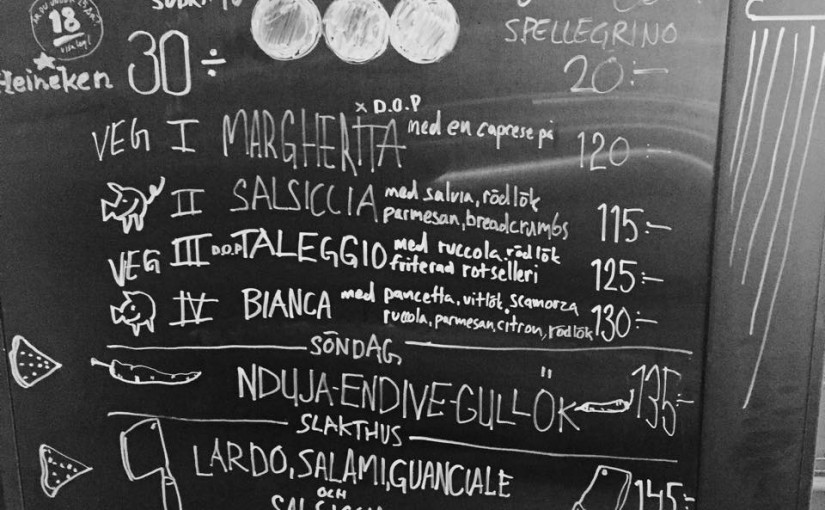 18
Heineken
30 ÷
SPELLEGRINO
20:-
VEG I MARGHERITA x D.O.P med en caprese på 120:-
II SALSICCIA med salvia, rödlök
parmesan, breadcrumbs 115:-
VEG III D.O.P TALEGGIO med ruccola, rödlök
friterad rotselleri 125:-
IV BIANCA med pancetta, vitlök, scamorza
ruccola, parmesan, citron, rödlök 130:-
SÖNDAG
NDUJA-ENDIVE-GULLÖK 135:-
SLAKTHUS
LARDO, SALAMI, GUANCIALE
OCH 145:-